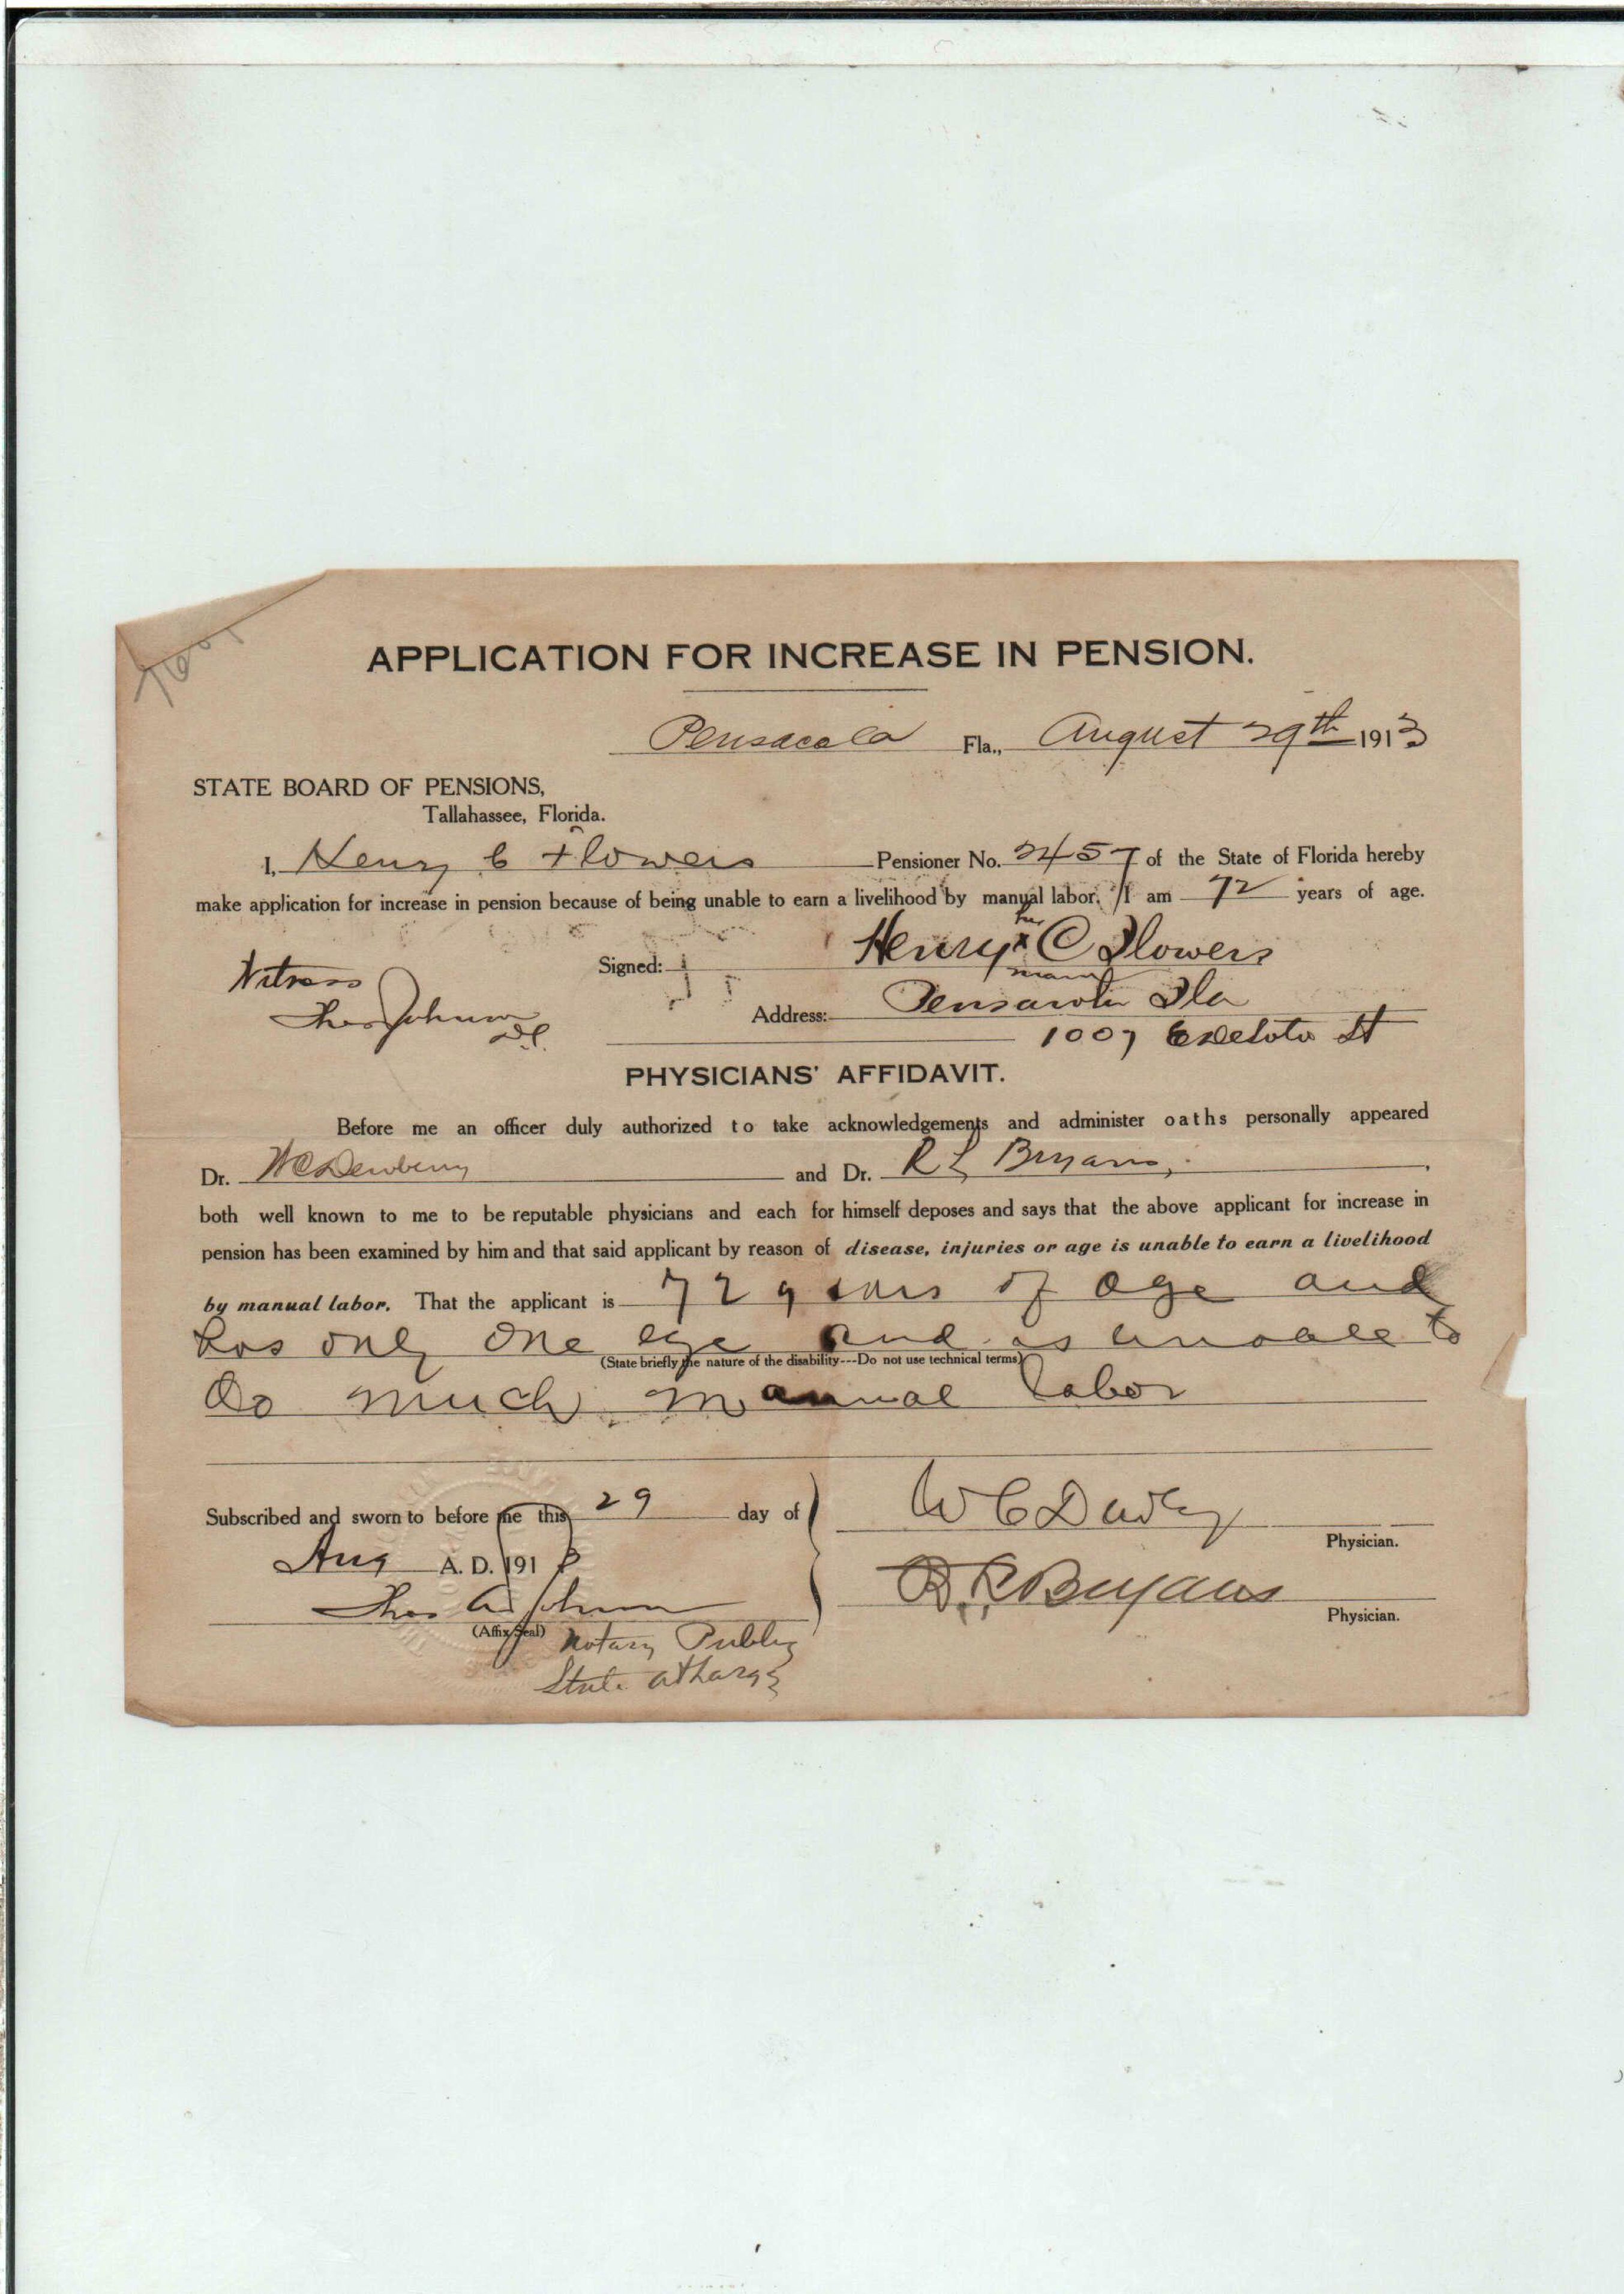 APPLICATION FOR INCREASE IN PENSION.
Pensacola Fla., August 29th 1913
STATE BOARD OF PENSIONS,
Tallahassee, Florida.
I, Henry C Flowers Pensioner No. 2457 of the State of Florida hereby
make application for increase in pension because of being unable to earn a livelihood by manual labor. I am 72 years of age.
his
Signed: Henry x C Flowers
mark
Witness
Address: Pensacola Fla
Johnson
1007 E DeSoto St
PHYSICIANS' AFFIDAVIT.
Before me an officer duly authorized to take acknowledgements and administer oaths personally appeared
Dr. W C Dewberry and Dr. R L Bryans,
both well known to me to be reputable physicians and each for himself deposes and says that the above applicant for increase in
pension has been examined by him and that said applicant by reason of disease, injuries or age is unable to earn a livelihood
by manual labor. That the applicant is 72 years of age and
has only one eye and is unable to
(State briefly the nature of the disability---Do not use technical terms)
do much manual labor
Subscribed and sworn to before me this 29 day of
W C
Physician.
Aug A. D. 191
Bryans
Physician.
Thos A Johnson
(Affix Seal) Notary Public
State at Large